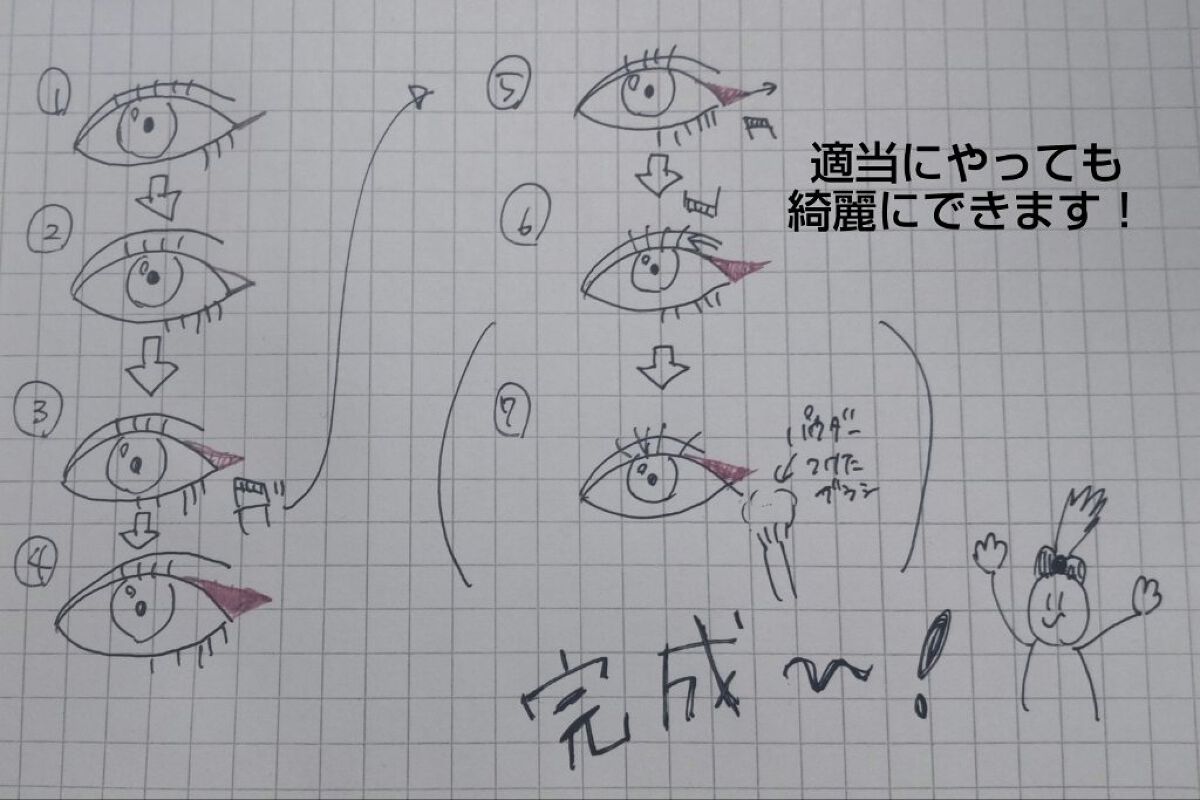 ①
②
③
④
⑤
適当にやっても
綺麗にできます！
⑥
⑦
パウダー
ブラシ
完成〜！